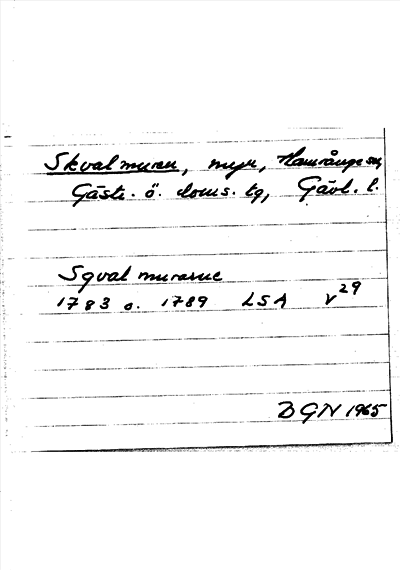 Skvalmuren, myr, Hamrånge sn,
Gästr. ö. doms. tg, Gävl. l.
Sqval murarne
1783 o. 1789 LSA V29
BGN 1965